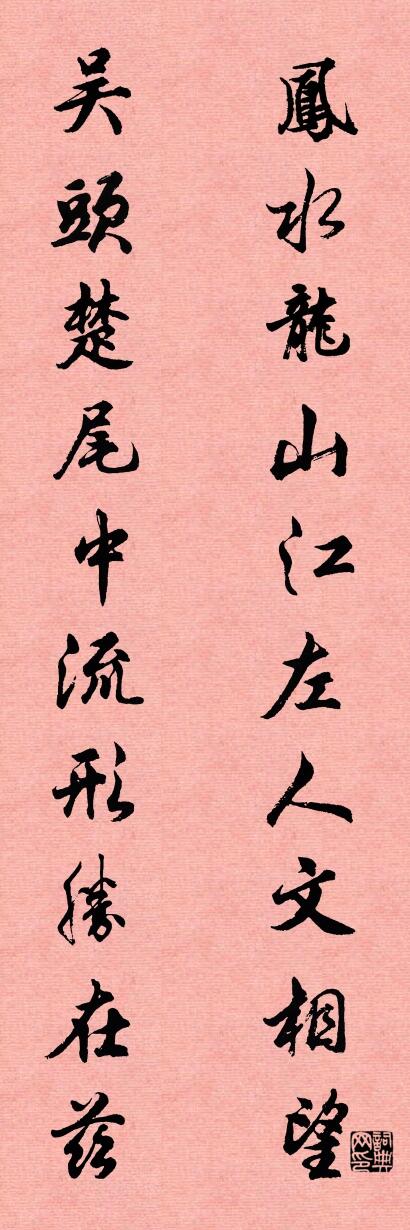 鳳水龍山江左人文相望
吴頭楚尾中流形勝在兹
詞典网印